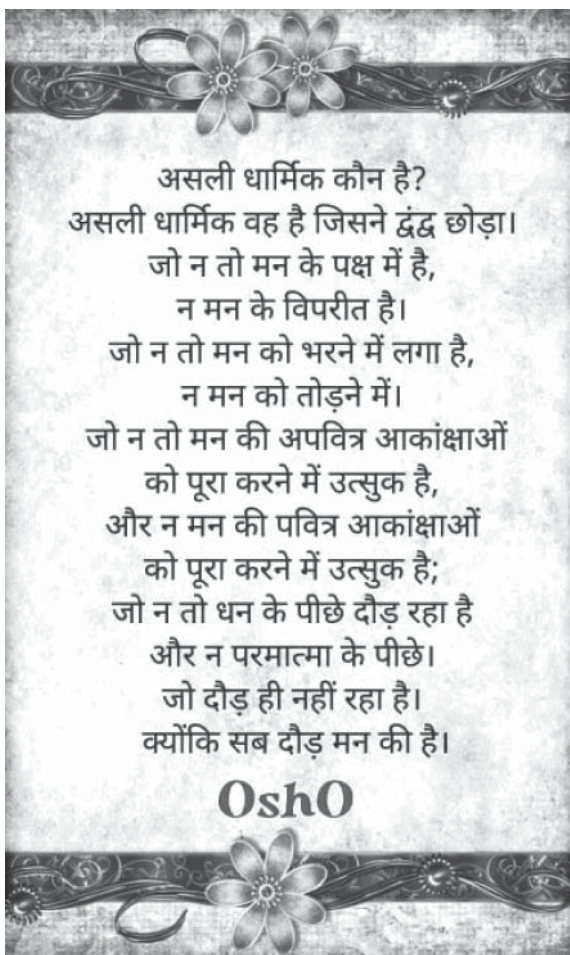 असली धार्मिक कौन है?
असली धार्मिक वह है जिसने द्वंद्व छोड़ा।
जो न तो मन के पक्ष में है,
न मन के विपरीत है।
जो न तो मन को भरने में लगा है,
न मन को तोड़ने में।
जो न तो मन की अपवित्र आकांक्षाओं
को पूरा करने में उत्सुक है,
और न मन की पवित्र आकांक्षाओं
को पूरा करने में उत्सुक है;
जो न तो धन के पीछे दौड़ रहा है
और न परमात्मा के पीछे।
जो दौड़ ही नहीं रहा है।
क्योंकि सब दौड़ मन की है।
OshO